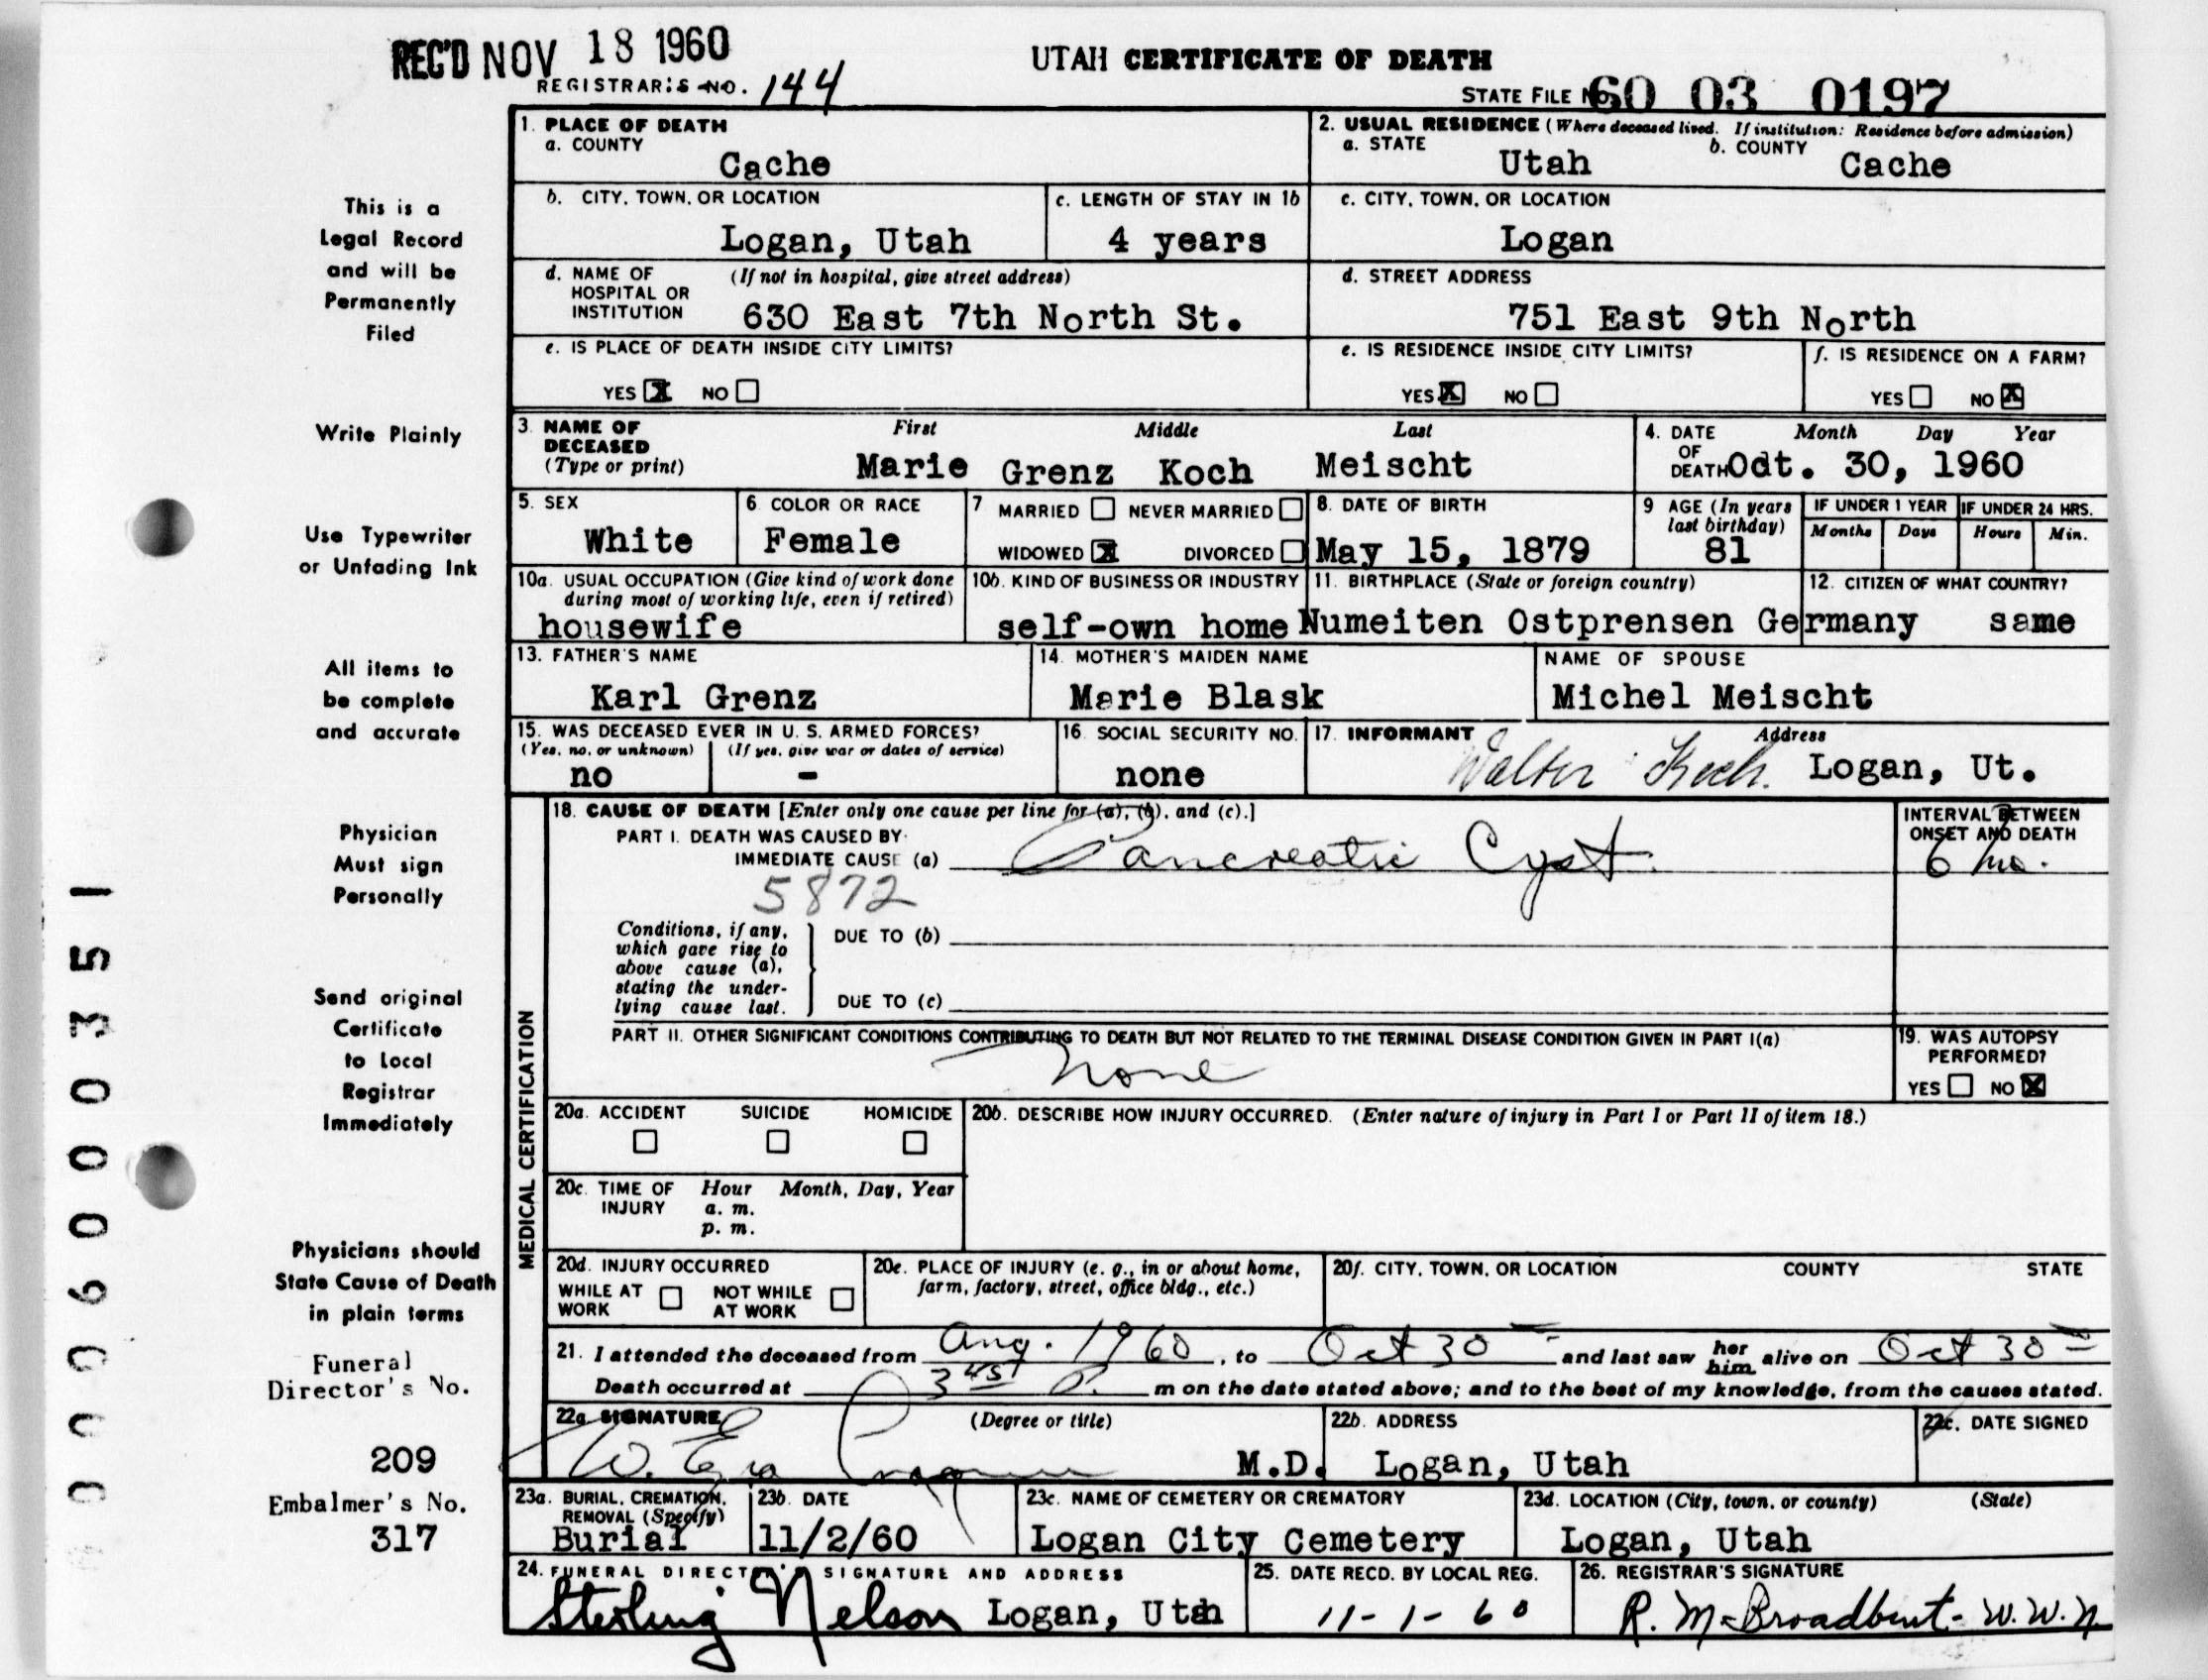 REC'D NOV 18 1960
UTAH CERTIFICATE OF DEATH
REGISTRAR'S NO. 144
STATE FILE NO. 60 03 0197
1. PLACE OF DEATH
a. COUNTY
Cache
2. USUAL RESIDENCE (Where deceased lived. If institution: Residence before admission)
a. STATE
Utah
b. COUNTY
Cache
b. CITY, TOWN, OR LOCATION
Logan, Utah
c. LENGTH OF STAY IN 1b
4 years
c. CITY, TOWN, OR LOCATION
Logan
d. NAME OF HOSPITAL OR INSTITUTION
(If not in hospital, give street address)
630 East 7th North St.
d. STREET ADDRESS
751 East 9th North
e. IS PLACE OF DEATH INSIDE CITY LIMITS?
YES X NO
e. IS RESIDENCE INSIDE CITY LIMITS?
YES X NO
f. IS RESIDENCE ON A FARM?
YES NO X
3. NAME OF DECEASED
(Type or print)
First Middle Last
Marie Grenz Koch Meischt
4. DATE OF DEATH
Month Day Year
Odt. 30, 1960
5. SEX
White
6. COLOR OR RACE
Female
7 MARRIED NEVER MARRIED
WIDOWED X DIVORCED
8. DATE OF BIRTH
May 15, 1879
9 AGE (In years last birthday)
81
IF UNDER 1 YEAR
Months Days
IF UNDER 24 HRS.
Hours Min.
10a. USUAL OCCUPATION (Give kind of work done during most of working life, even if retired)
housewife
10b. KIND OF BUSINESS OR INDUSTRY
self-own home
11. BIRTHPLACE (State or foreign country)
Numeiten Ostprensen Germany
12. CITIZEN OF WHAT COUNTRY?
same
13. FATHER'S NAME
Karl Grenz
14. MOTHER'S MAIDEN NAME
Marie Blask
NAME OF SPOUSE
Michel Meischt
15. WAS DECEASED EVER IN U. S. ARMED FORCES?
(Yes, no, or unknown) (If yes, give war or dates of service)
no -
16. SOCIAL SECURITY NO.
none
17. INFORMANT Address
Walter Koch. Logan, Ut.
MEDICAL CERTIFICATION
18. CAUSE OF DEATH [Enter only one cause per line for (a), (b), and (c).]
PART I. DEATH WAS CAUSED BY:
IMMEDIATE CAUSE (a) Pancreatic Cyst
5872
INTERVAL BETWEEN ONSET AND DEATH
6 mo.
Conditions, if any, which gave rise to above cause (a), stating the underlying cause last.
DUE TO (b)
DUE TO (c)
PART II. OTHER SIGNIFICANT CONDITIONS CONTRIBUTING TO DEATH BUT NOT RELATED TO THE TERMINAL DISEASE CONDITION GIVEN IN PART I(a)
none
19. WAS AUTOPSY PERFORMED?
YES NO X
20a. ACCIDENT SUICIDE HOMICIDE
20b. DESCRIBE HOW INJURY OCCURRED. (Enter nature of injury in Part I or Part II of item 18.)
20c. TIME OF INJURY
Hour Month, Day, Year
a. m.
p. m.
20d. INJURY OCCURRED
WHILE AT WORK NOT WHILE AT WORK
20e. PLACE OF INJURY (e. g., in or about home, farm, factory, street, office bldg., etc.)
20f. CITY, TOWN, OR LOCATION COUNTY STATE
21. I attended the deceased from Aug. 1960, to Oct 30 and last saw her him alive on Oct 30
Death occurred at 3 45 P. m on the date stated above; and to the best of my knowledge, from the causes stated.
22a SIGNATURE (Degree or title)
W. Ezra M.D.
22b. ADDRESS
Logan, Utah
22c. DATE SIGNED
23a. BURIAL, CREMATION, REMOVAL (Specify)
Burial
23b. DATE
11/2/60
23c. NAME OF CEMETERY OR CREMATORY
Logan City Cemetery
23d. LOCATION (City, town, or county) (State)
Logan, Utah
24. FUNERAL DIRECTOR'S SIGNATURE AND ADDRESS
Sterling Nelson Logan, Utah
25. DATE RECD. BY LOCAL REG.
11-1-60
26. REGISTRAR'S SIGNATURE
R. M. Broadbent - W.W.N.
This is a
Legal Record
and will be
Permanently
Filed
Write Plainly
Use Typewriter
or Unfading Ink
All items to
be complete
and accurate
Physician
Must sign
Personally
Send original
Certificate
to Local
Registrar
Immediately
Physicians should
State Cause of Death
in plain terms
Funeral
Director's No.
209
Embalmer's No.
317
0009600351